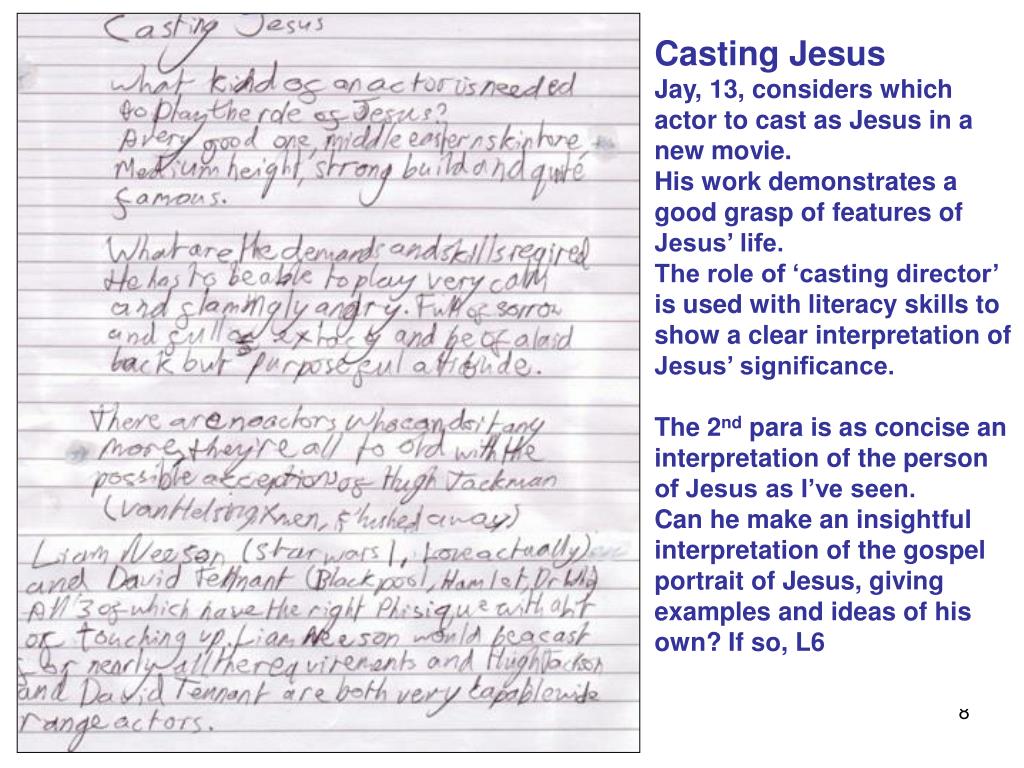 Casting Jesus
what kind of an actor is needed
to play the role of Jesus?
A very good one, middle eastern skin tone,
Medium height, strong build and quite
famous.
What are the demands and skills regired
He has to be able to play very calm
and flamingly angry. Full of sorrow
and full of extacy and be of a laid
back but purposeful attitude.
There are no actors who can do it any
more, they're all to old with the
possible acceptions of Hugh Jackman
(Van Helsing Xmen, flushed away)
Liam Neeson (Star wars 1, Love actually)
and David Tennant (Blackpool, Hamlet, Dr Who)
All 3 of which have the right Phisique with abit
of touching up. Liam Neeson would be a cast
for nearly all the requirements and Hugh Jackson
and David Tennant are both very capable wide
range actors.
Casting Jesus
Jay, 13, considers which
actor to cast as Jesus in a
new movie.
His work demonstrates a
good grasp of features of
Jesus’ life.
The role of ‘casting director’
is used with literacy skills to
show a clear interpretation of
Jesus’ significance.
The 2nd para is as concise an
interpretation of the person
of Jesus as I’ve seen.
Can he make an insightful
interpretation of the gospel
portrait of Jesus, giving
examples and ideas of his
own? If so, L6
8